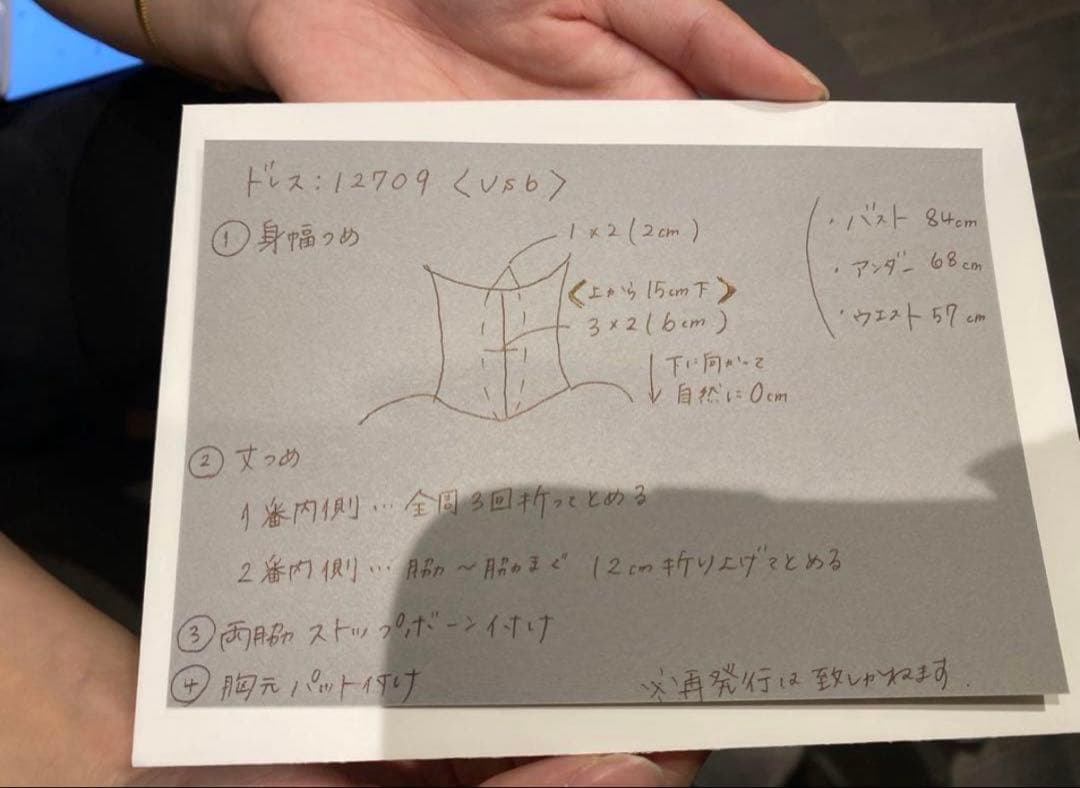 ドレス：12709 〈Vsb〉
・バスト 84cm
・アンダー 68cm
・ウエスト 57cm
① 身幅つめ
1×2(2cm)
〈上から15cm下〉
3×2(6cm)
↓下に向かって
自然に0cm
② 丈つめ
1番内側…全周3回折ってとめる
2番内側…脇〜脇まで 12cm折り上げてとめる
③ 両脇ストップボーン付け
④ 胸元パット付け
※再発行は致しかねます.